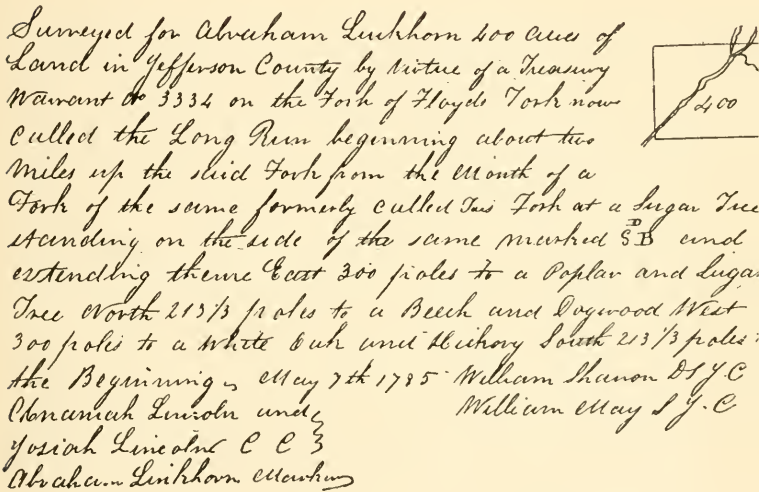 Surveyed for Abraham Linkhorn 400 acres of
Land in Jefferson County by Virtue of a Treasury
Warrant No 3334 on the Fork of Floyds Fork now
Called the Long Run beginning about two
Miles up the said Fork from the Mouth of a
Fork of the same formerly Called Fork at a Sugar Tree
standing on the side of the same marked S D B and
extending thence East 300 poles to a Poplar and Sugar
Tree North 213 1/3 poles to a Beech and Dogwood West
300 poles to a White Oak and Hickory South 213 1/3 poles
the Beginning May 7th 1785 William Shanon D S J. C
Ananiah Lincoln and William May S J. C
Josiah Lincoln C C
Abraham Linkhorn Marker
400